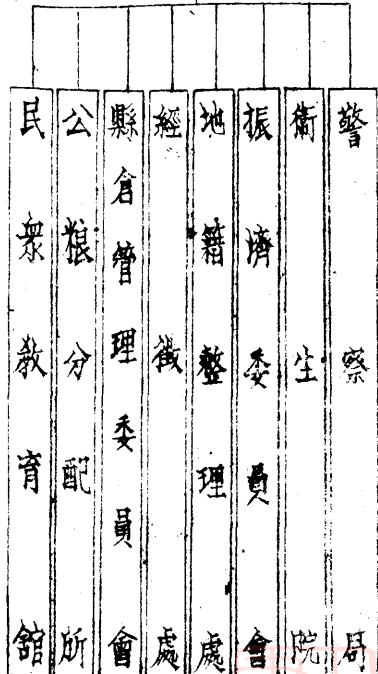 警察局
衛生院
振濟委員會
地籍整理處
經徵處
縣倉管理委員會
公粮分配所
民眾教育館